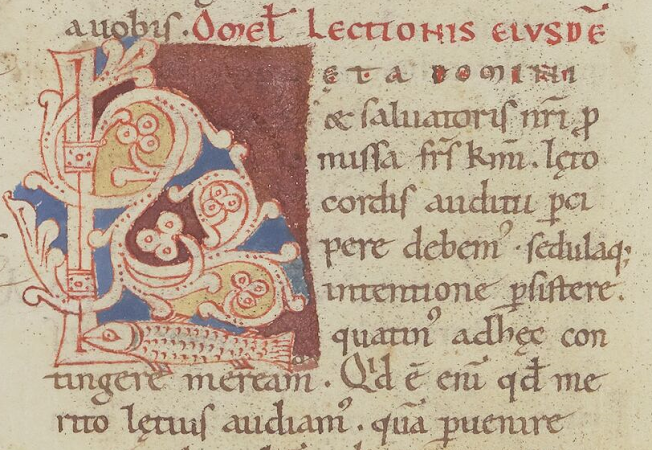 a uobis. Om̅el̅ Lectionis eiusde̅
LETA DOMINI
& saluatoris nr̅i p̲
missa fr̅s km̅i. lęto
cordis auditu p̲ci
pere debem᾿. sedulaq;
intentione p̲sistere.
quatin᾿ adhęc con
tingere meream᾿. Qd̅ ē eni̅ qd̅ me
rito lętius audiam᾿. qua̅ p̲uenire